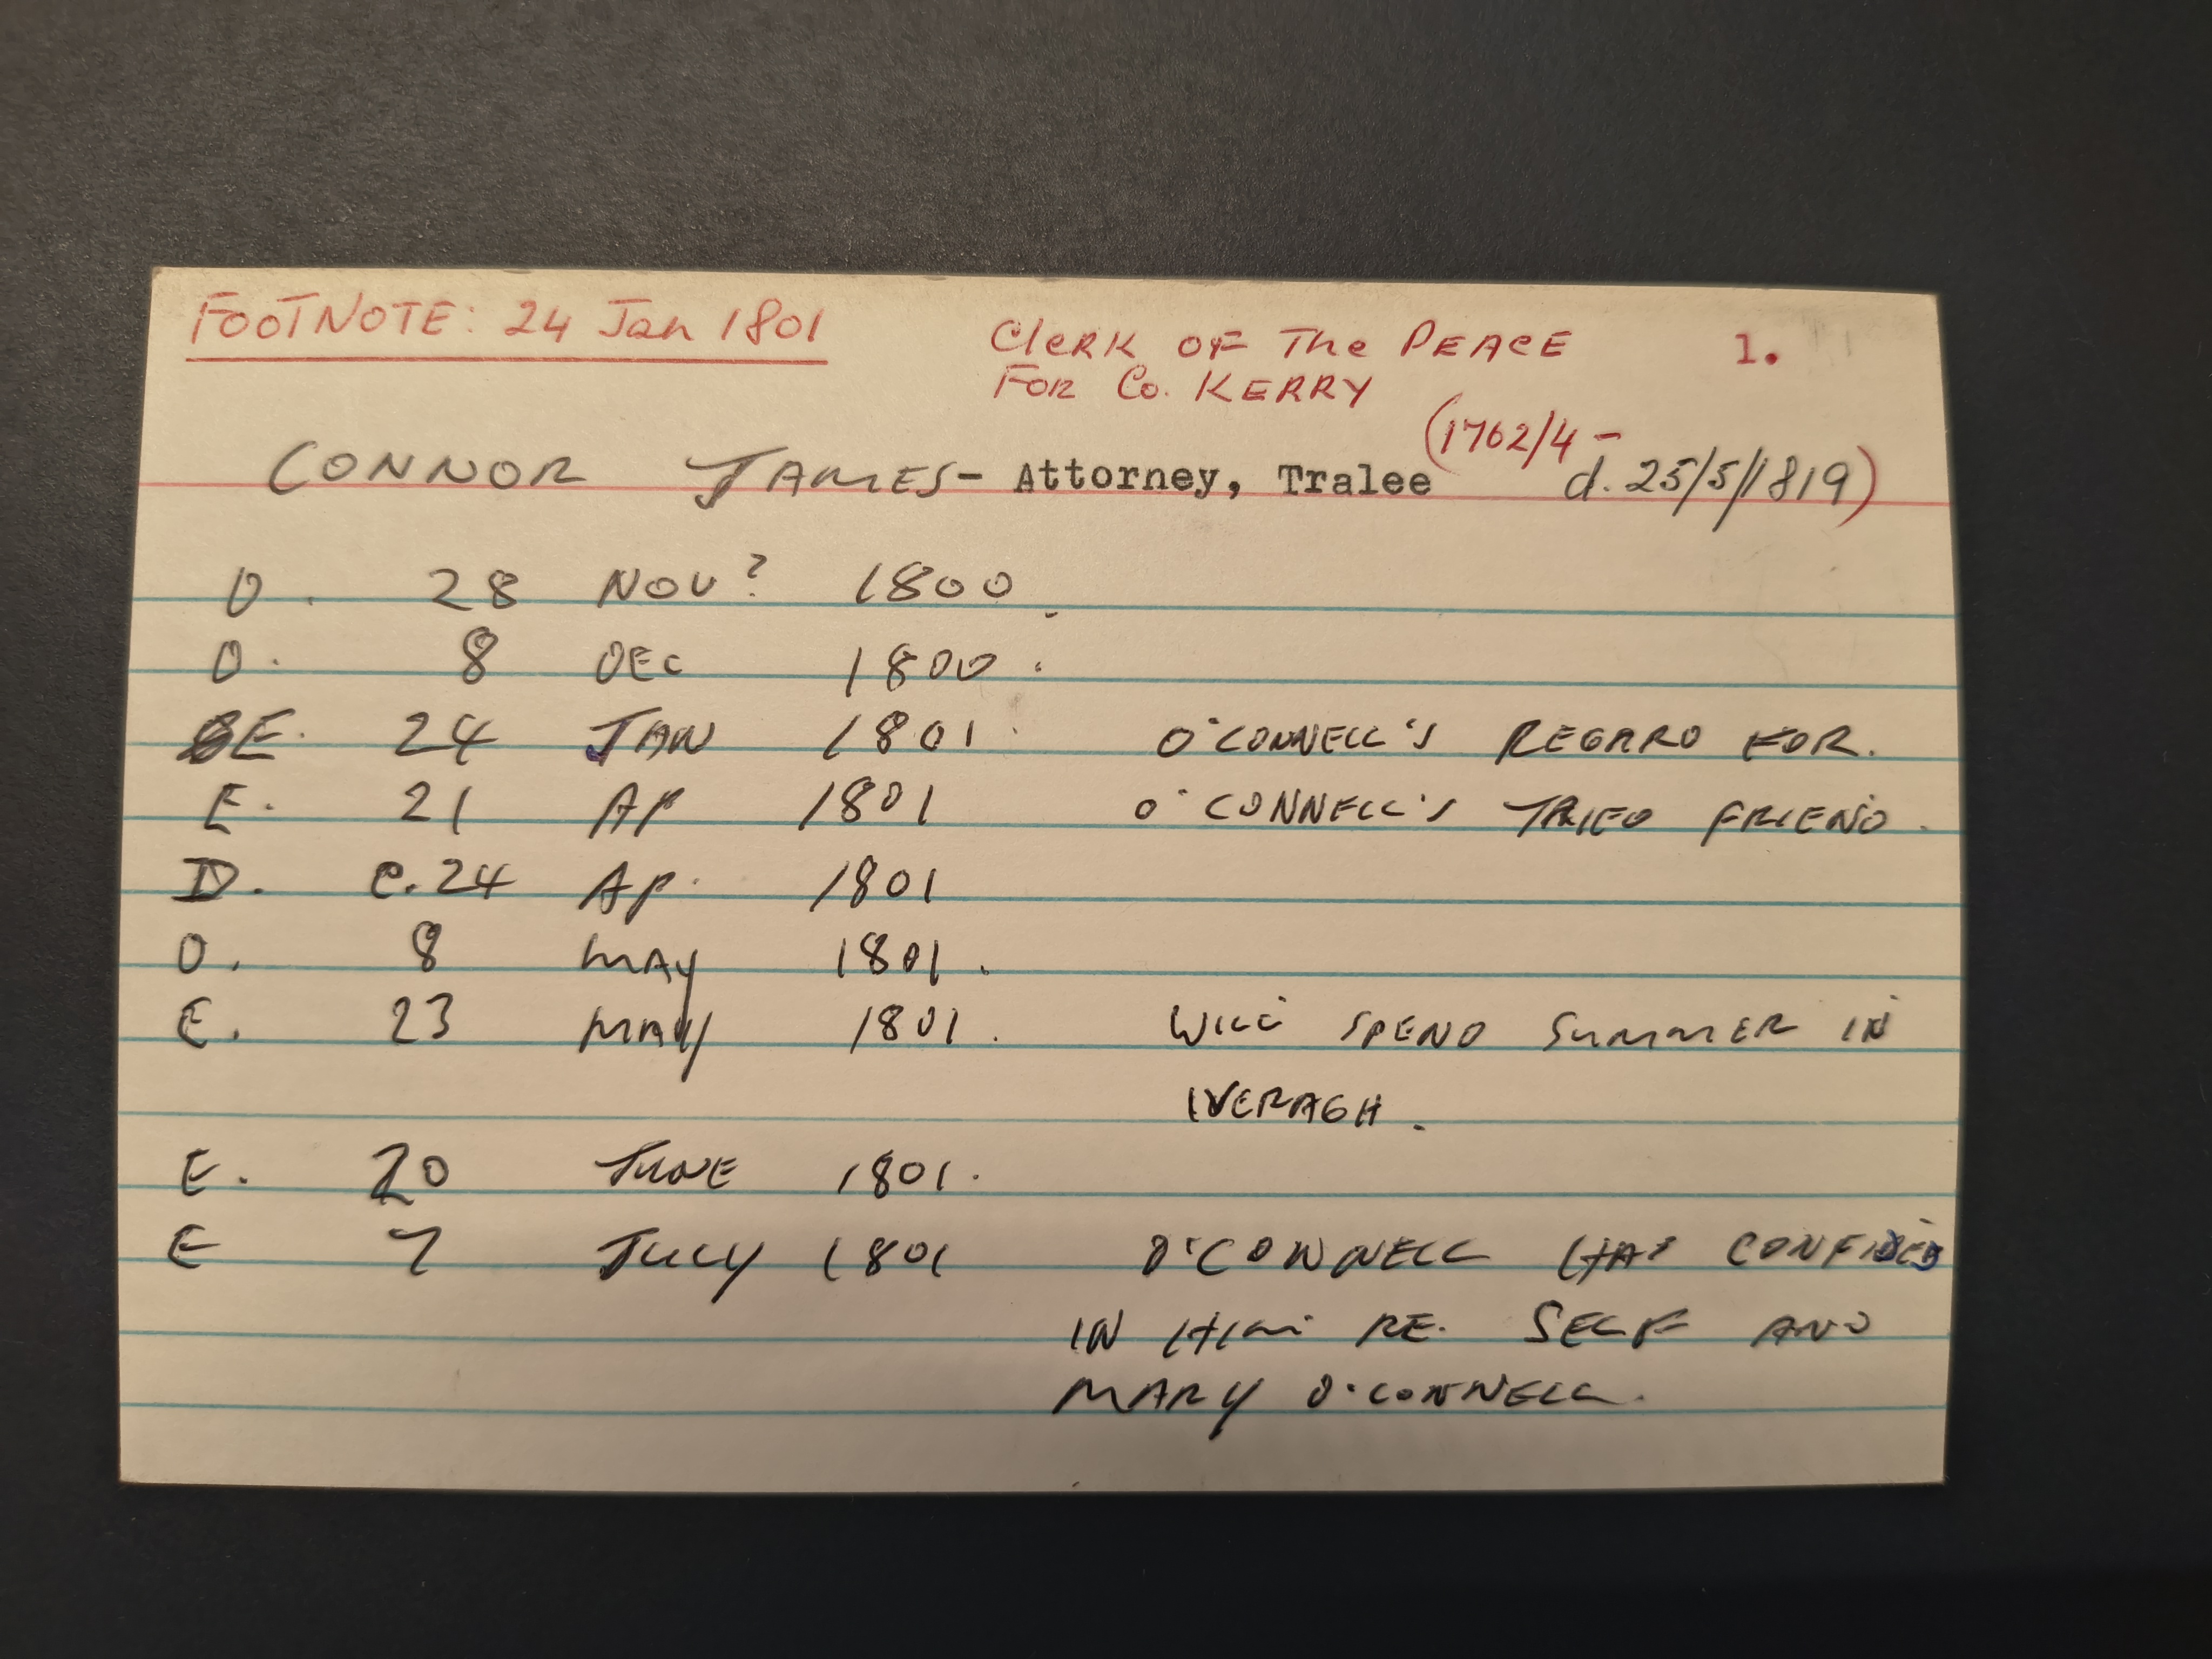 FOOTNOTE: 24 Jan 1801
Clerk of The Peace 1.
For Co. Kerry
(1762/4 -
CONNOR JAMES - Attorney, Tralee d. 25/5/1819)
D. 28 NOV? 1800.
D. 8 DEC 1800.
E. 24 JAN 1801. O'CONNELL'S REGARD FOR.
E. 21 AP 1801 O'CONNELL'S TRIED FRIEND.
D. c. 24 AP. 1801
D. 8 MAY 1801.
E. 23 MAY 1801. WILL SPEND SUMMER IN
IVERAGH.
E. 20 JUNE 1801.
E 7 JULY 1801 O'CONNELL HAS CONFIDED
IN HIM RE. SELF AND
MARY O'CONNELL.